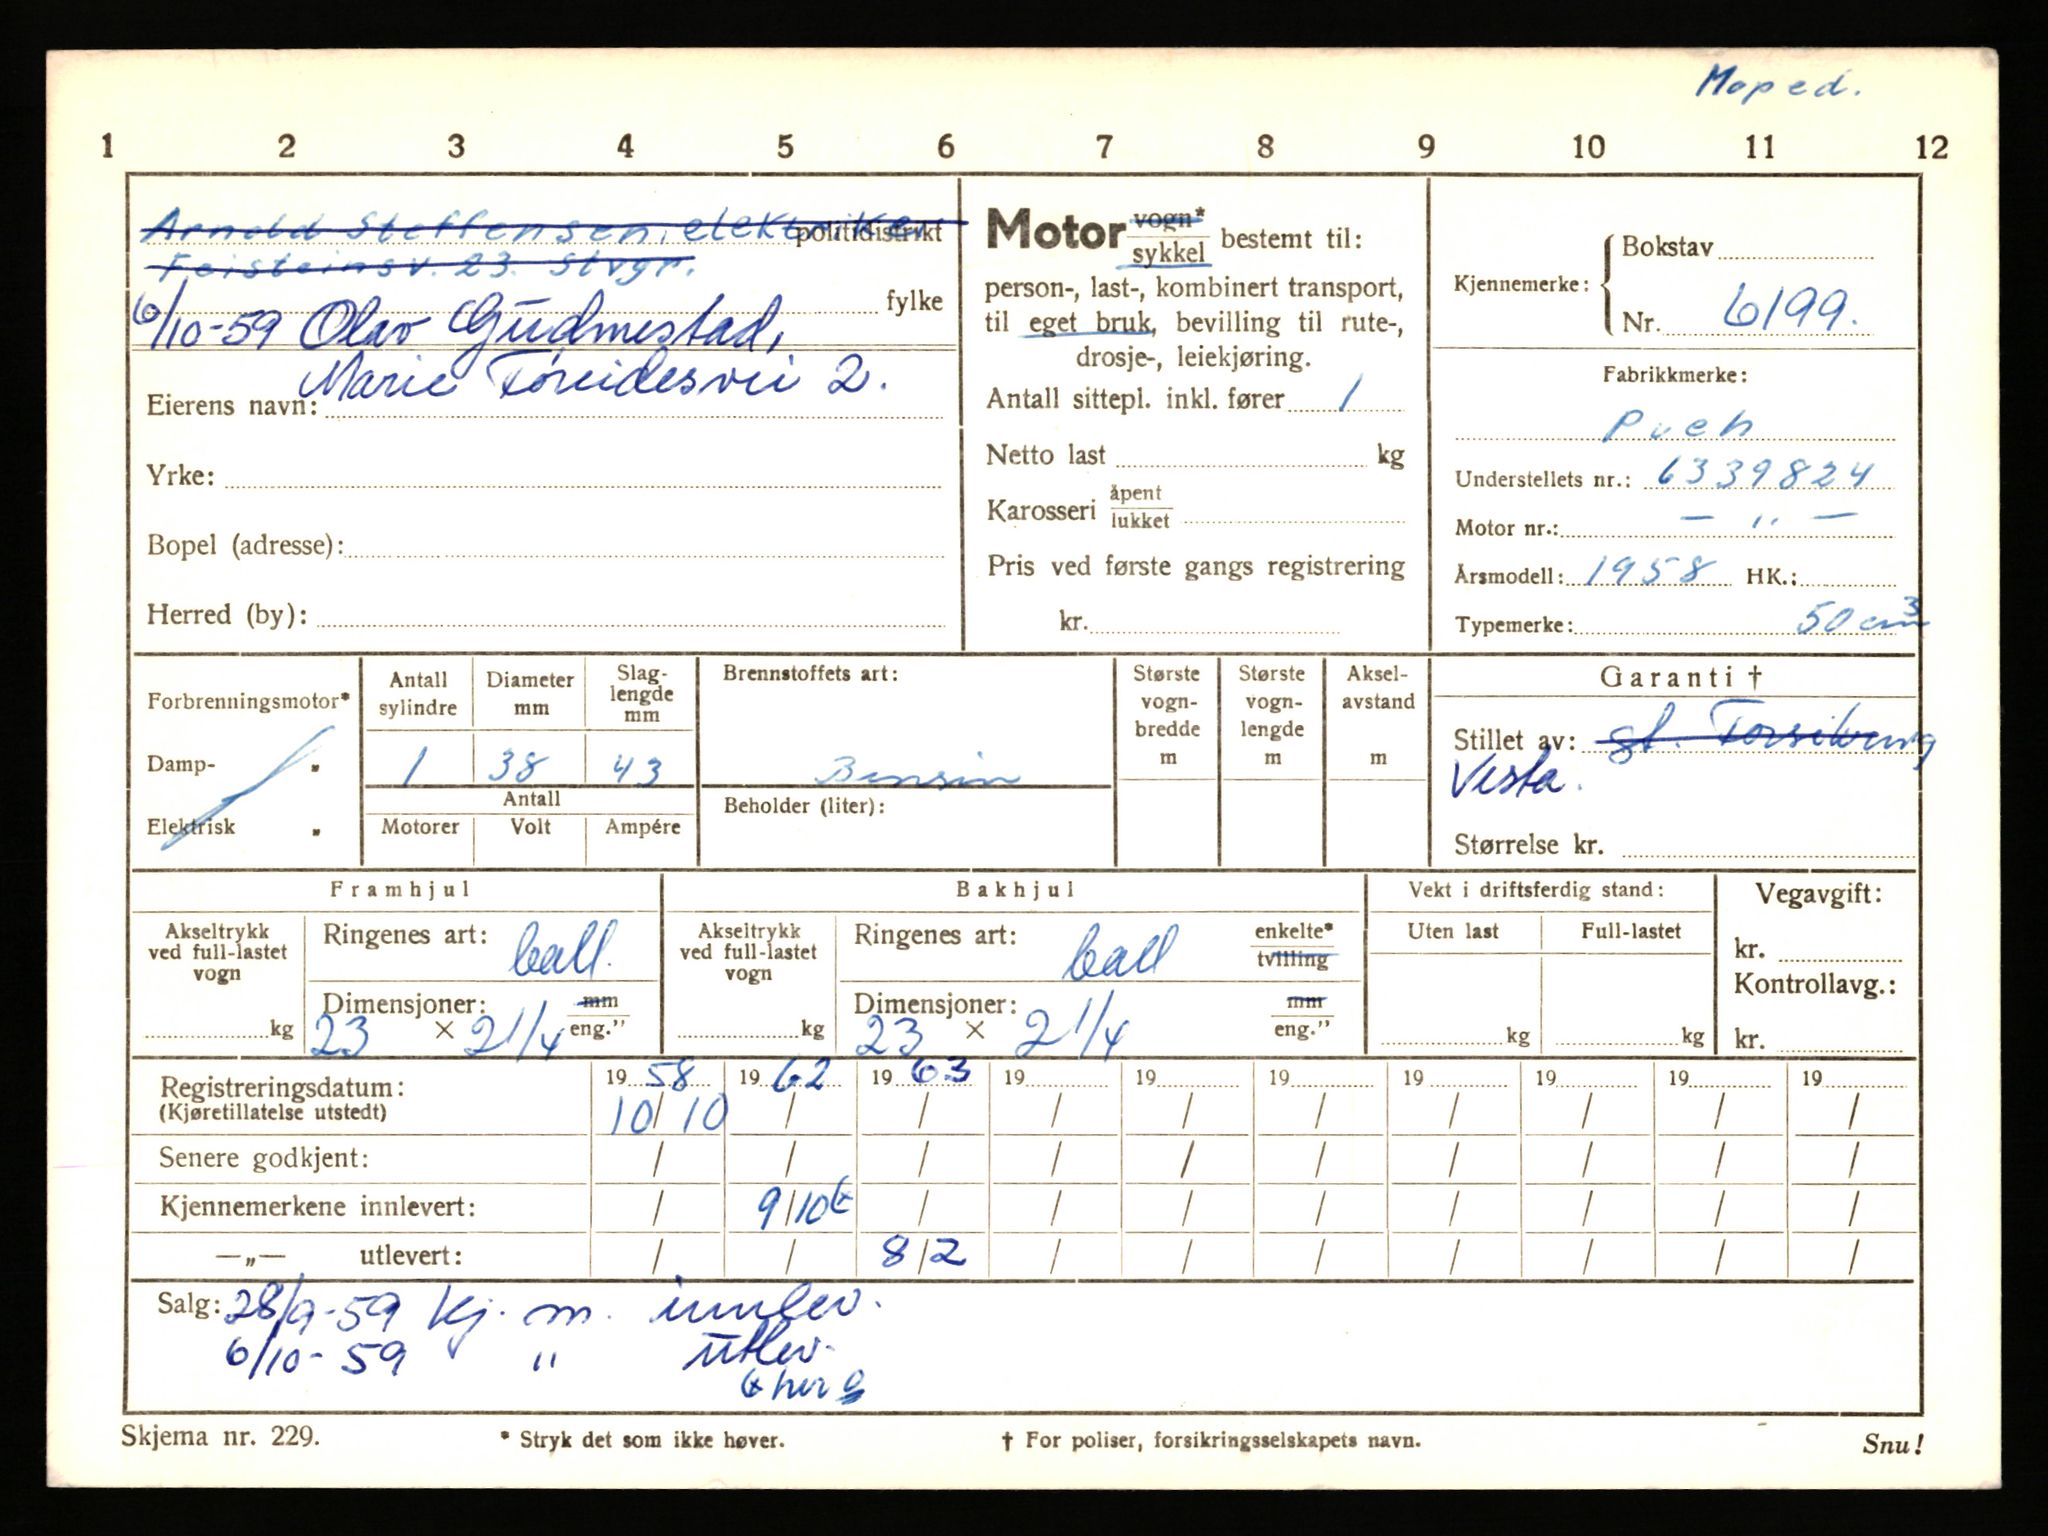 Moped.
1 2 3 4 5 6 7 8 9 10 11 12
Arnold Steffensen, elektriker politidistrikt
Feisteinsv. 23. Stvgr.
fylke
6/10-59 Olav Gudmestad,
MarieFøreidesvei 2.
Eierens navn:
Yrke:
Bopel (adresse):
Herred (by):
Motor vogn* sykkel bestemt til:
person-, last-, kombinert transport,
til eget bruk, bevilling til rute-,
drosje-, leiekjøring.
Antall sittepl. inkl. fører 1
Netto last kg
Karosseri åpent lukket
Pris ved første gangs registrering
kr.
Kjennemerke: Bokstav
Nr. 6199.
Fabrikkmerke:
Puch
Understellets nr.: 6339824
Motor nr.: — " —
Årsmodell: 1958 HK.:
Typemerke: 50 cm3
Forbrenningsmotor*
Damp- „
Elektrisk „
Antall sylindre
Diameter mm
Slag-lengde mm
1 38 43
Antall
Motorer Volt Ampére
Brennstoffets art:
Bensin
Beholder (liter):
Største vogn-bredde m
Største vogn-lengde m
Aksel-avstand m
Garanti †
Stillet av:
Vesta.
Størrelse kr.
Framhjul
Akseltrykk ved full-lastet vogn
kg
Ringenes art: ball.
Dimensjoner: mm
23 × 2 1/4 eng."
Bakhjul
Akseltrykk ved full-lastet vogn
kg
Ringenes art: ball enkelte* tvilling
Dimensjoner: mm
23 × 2 1/4 eng."
Vekt i driftsferdig stand:
Uten last Full-lastet
kg kg
Vegavgift:
kr.
Kontrollavg.:
kr.
Registreringsdatum: 19 58 19 62 19 63 19 19 19 19 19 19 19
(Kjøretillatelse utstedt) 10/10 / / / / / / / / /
Senere godkjent: / / / / / / / / / /
Kjennemerkene innlevert: / 9/10 / / / / / / / /
—„— utlevert: / / 8/2 / / / / / / /
Salg: 28/9-59 kj. m. innlev.
6/10-59 " utlev.
Skjema nr. 229. * Stryk det som ikke høver. † For poliser, forsikringsselskapets navn. Snu!